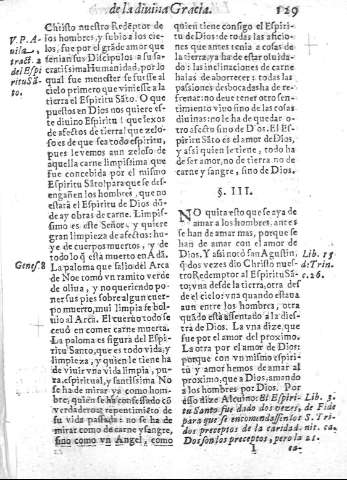 de la divina Gracia. 129
Christo nuestro Redẽptor de
los hombres, y subio a los cie-
los, fue por el grãde amor que
tenian sus Discipulos a su sa-
cratissima Humanidad, por lo
qual fue menester se fuesse al
cielo primero que viniesse a la
tierra el Espiritu Sãto. O que
puestos en Dios nos quiere es-
te diuino Espiritu! que lexos
de afectos de tierra! que zelo-
so es de que sea todo espiritu,
pues le vemos aun zeloso de
aquella carne limpissima que
fue concebida por el mismo
Espiritu Sãto! para que se des-
engañen los hombres, que no
estarà el Espiritu de Dios dõ-
de ay obras de carne. Limpis-
simo es este Señor, y quiere
gran limpieza de afectos: hu-
ye de cuerpos muertos, y de
todo lo q̃ està muerto en Adã.
La paloma que saliò del Arca
de Noe como vn ramito verde
de oliua, y no queriendo po-
ner sus pies sobre algun cuer-
po muerto, mui limpia se bol-
uio al Arca. El cueruo todo se
ceuò en comer carne muerta.
La paloma es figura del Espi-
ritu Santo, que es todo vida, y
limpieza, y quien le tiene ha
de viuir vna vida limpia, y
pura, espiritual, y santissima. No
se ha de mirar ya como hom-
bre, quien se ha confessado cõ
verdadero arrepentimiẽto de
su vida passada: no se ha de
mirar como de carne y sangre,
sino como vn Angel, como
V. P. A-
uila,
tract. 2
del Espi
ritu Sã-
to.
Genes. 8
quien tiene consigo el Espiri-
tu de Dios: de todas las aficio-
nes que antes tenia a cosas de
la tierra ya ha de estar oluida-
do: las inclinaciones de carne
halas de aborrecer: todas las
passiones desbocadas ha de re-
frenar: no deue tener otro sen-
timiento viuo sino de las cosas
diuinas: no le ha de quedar o-
tro afecto sino de Dios. El Es-
piritu Sãto es el amor de Dios,
y assi quien le tiene, todo ha
de ser amor, no de tierra, no de
carne y sangre, sino de Dios.
§. III.
NO quita esto que se aya de
amar a los hombres, antes
se han de amar mas, porque se
han de amar con el amor de
Dios. Y assi notò san Agustin,
q̃ dos vezes dio Christo nues-
tro Redemptor al Espiritu Sã-
to; vna desde la tierra, otra des-
de el cielo: vna quando estaua
aun entre los hombres, otra
quãdo està assentado a la dies-
tra de Dios. La vna dize, que
fue por el amor del proximo.
La otra por el amor de Dios:
porque con vn mismo espiri-
tu y amor hemos de amar al
proximo, que a Dios, amando
a los hombres por Dios. Por
esso dize Alcuino: El Espiri-
tu Santo fue dado dos vezes,
para que se encomendassen los
dos preceptos de la caridad.
Dos son los preceptos, pero la
I ca-
Lib. 15
de Trin.
c. 26.
Lib. 3.
de Fide
S. Tri
nit. ca.
21.